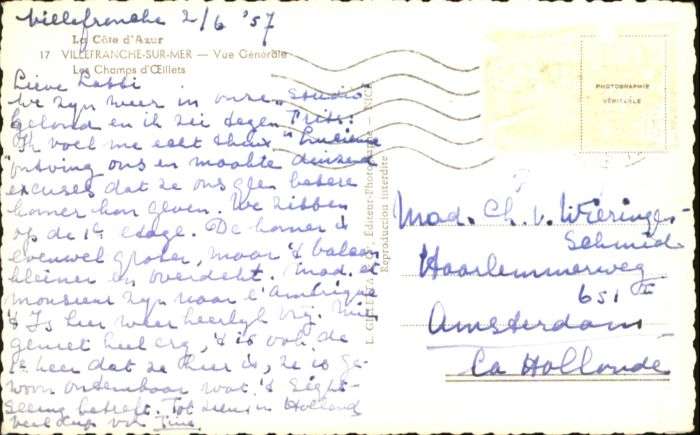 Villefranche 2/6 '57
La Côte d'Azur
17 VILLEFRANCHE-SUR-MER — Vue Générale
Les Champs d'Œillets
Lieve
We zijn weer in onze "Studio"
geland en ik zei tegen Frits:
Ik voel me echt thuis. "Lucienne"
ontving ons en maakte duizend
excuses dat ze ons geen betere
kamer kon geven. We zitten
op de 1e etage. De kamer is
evenwel groter, maar 't balcon
kleiner en overdekt. Mad. et
monsieur zijn naar l'Amérique
't Is hier weer heerlijk vrij.
geniet heel erg, 't is ook de
1e keer dat ze hier is, ze is ge-
woon wat 't Sight-
Seeing betreft. Tot ziens in Holland
veel liefs van Tine
PHOTOGRAPHIE
VÉRITABLE
Éditeur-Photographe — NICE
Reproduction interdite
Mad. Ch. v. Wieringen-
Schmid
Haarlemmerweg
651 II
Amsterdam
La Hollande